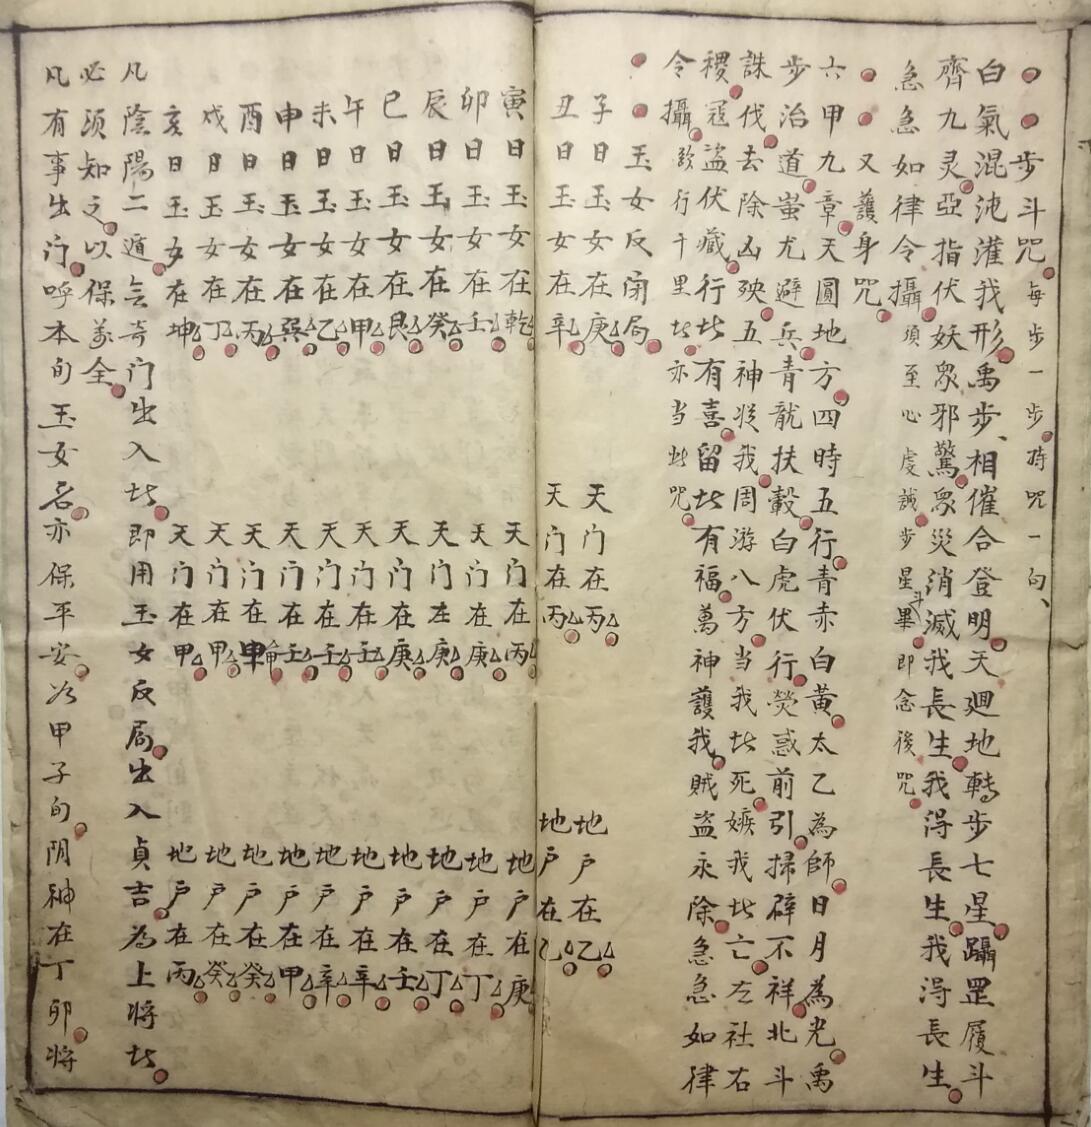 步斗咒每步一步持咒一句
白氣混沌灌我形禹步相催合登明天廻地轉步七星躡罡履斗
齊九灵亞指伏妖眾邪驚眾災消滅我長生我得長生我得長生
急急如律令攝須至心虔誠步星斗畢即念後咒
又護身咒
六甲九章天圓地方四時五行青赤白黃太乙為師日月為光禹
步治道蚩尤避兵青龍扶轂白虎伏行熒惑前引掃辟不祥北斗
誅伐去除凶殃五神從我周游八方当我者死嫉我者亡左社右
稷寇盜伏藏行者有喜留者有福萬神護我賊盜永除急急如律
令攝欲行千里者亦当此咒
玉女反闭局
子日玉女在庚 天门在丙 地户在乙
丑日玉女在辛 天门在丙 地户在乙
寅日玉女在乾 天门在丙 地户在庚
卯日玉女在壬 天门在庚 地户在丁
辰日玉女在癸 天门在庚 地户在丁
巳日玉女在艮 天门在庚 地户在壬
午日玉女在甲 天门在壬 地户在辛
未日玉女在乙 天门在壬 地户在辛
申日玉女在巽 天门在壬 地户在甲
酉日玉女在丙 天门在 地户在癸
戌日玉女在丁 天门在甲 地户在癸
亥日玉女在坤 天门在甲 地户在丙
凡陰陽二遁无奇门出入者即用玉女反局出入貞吉为上將者
必须知之以保万全
凡有事出门呼本旬玉女名亦保平安次甲子旬阴神在丁卯將